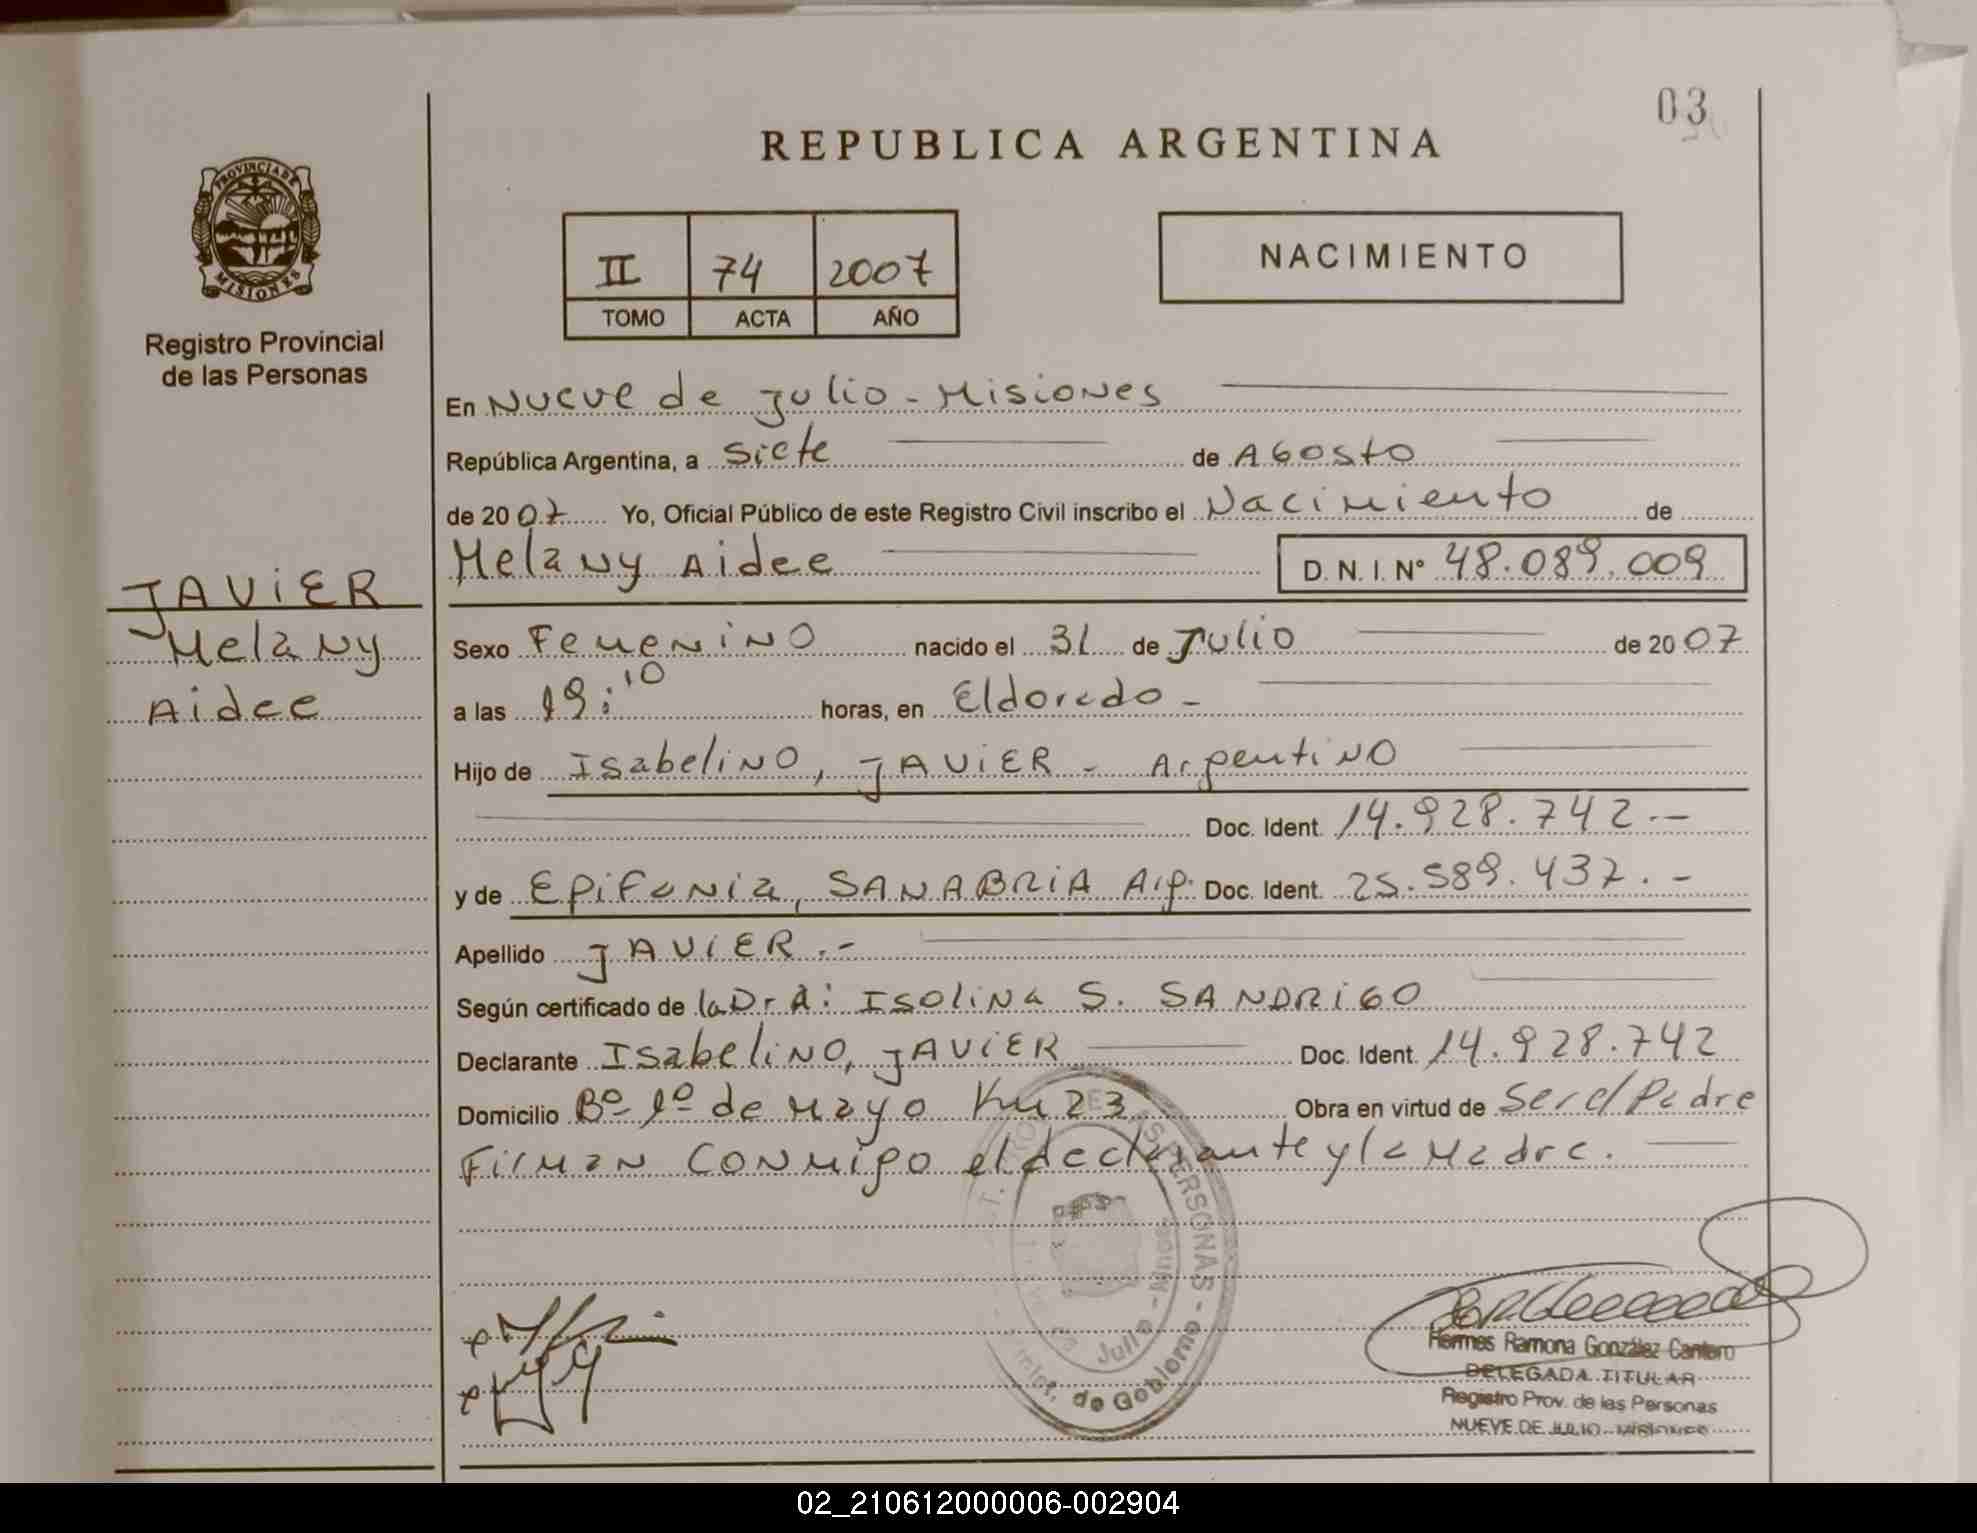 03
REPUBLICA ARGENTINA
PROVINCIA DE
MISIONES
Registro Provincial
de las Personas
II 74 2007
TOMO ACTA AÑO
NACIMIENTO
En Nueve de Julio - Misiones
República Argentina, a Siete de Agosto
de 2007 Yo, Oficial Público de este Registro Civil inscribo el Nacimiento de
Melany Aidee D.N.I. Nº 48.089.009
JAViER
Melany
Aidee
Sexo Femenino nacido el 31 de Julio de 2007
a las 19:10 horas, en Eldorado -
Hijo de Isabelino, JAViER - Argentino
Doc. Ident. 14.928.742.-
y de Epifania, SANABRiA Arg. Doc. Ident. 25.589.437.-
Apellido JAViER.-
Según certificado de la Dra: Isolina S. SANDRiGO
Declarante Isabelino, JAViER Doc. Ident. 14.928.742
Domicilio Bº 1º de Mayo Km 23 Obra en virtud de Ser el Padre
Firman conmigo el declarante y la Madre.
DE LAS PERSONAS - de Gobierno
Julio -
Hermes Ramona González Cantero
DELEGADA TITULAR
Registro Prov. de las Personas
NUEVE DE JULIO - MISIONES
02_210612000006-002904